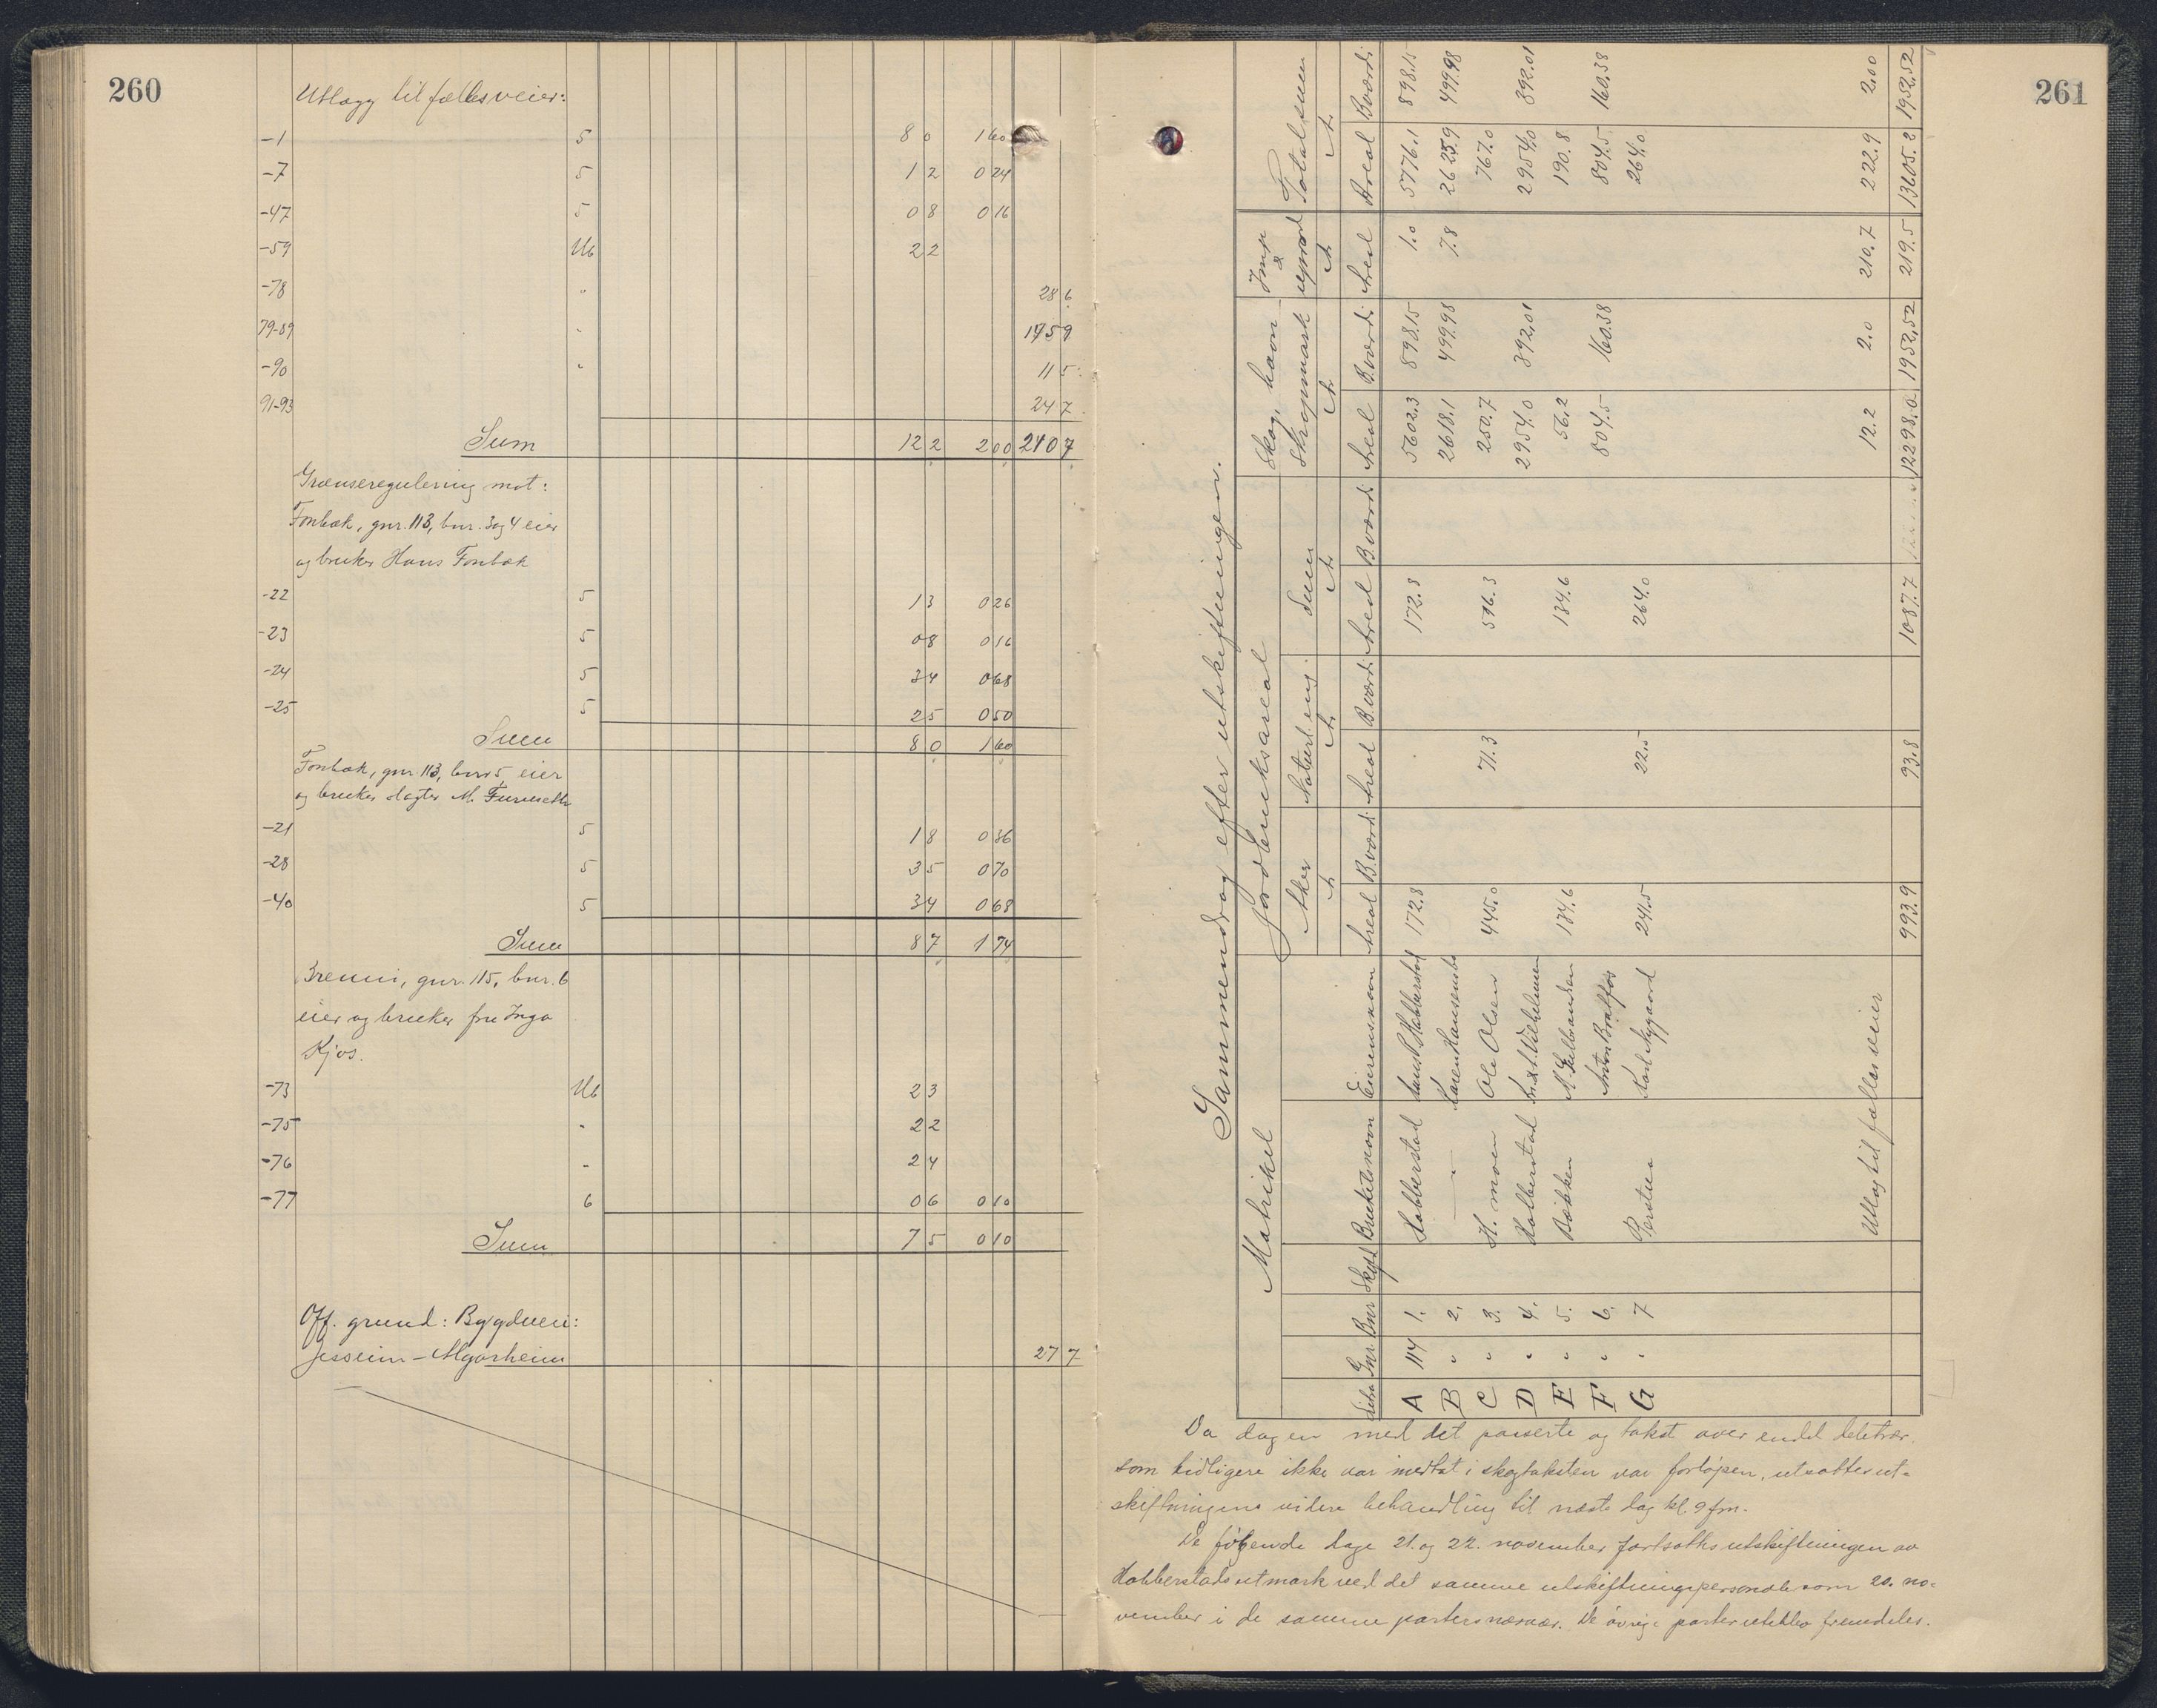 260
Utlægg til fællesveier:
-1 5 80 160
-7 5 12 024
-47 5 08 016
-59 Ub 22
-78 " 286
79-89 " 1759
-90 " 115
91-93 247
Sum 122 200 2407
Grænseregulering mot:
Fonbæk, gnr. 113, bnr. 3 og 4 eier
og bruker Hans Fonbæk
-22 5 13 026
-23 5 08 016
-24 5 34 068
-25 5 25 050
Sum 80 160
Fonbæk, gnr. 113, bnr 5 eier
og bruker M. Furuseth
-21 5 18 036
-28 5 35 070
-40 5 34 068
Sum 87 174
Brenni, gnr. 115, bnr. 6
eier og bruker fru Inga
Kjos.
-73 Ub 23
-75 " 22
-76 " 24
-77 6 06 010
Sum 75 010
Off. grund: Bygdevei:
Jessheim - Algarheim 277
261
Sammendrag efter utskiftningen.
Matrikel Jordbruksareal Skog, havn Imp & Totalsum
Aker Naturl. eng Sum Skrapmark uprod
Litra Gnr Bnr Skyld Brukets navn Eierens navn Areal B.værdi Areal B.værdi Areal B.værdi Areal B.værdi Areal Areal B.værdi
A 114 1. Habberstad Hans P. Habberstad 172.8 172.8 5602.3 898.15 1.0 5776.1 898.15
B " 2. — " — Karen 2618.1 499.98 7.8 2625.9 499.98
C " 3. H. moen Ole Olsen 445.0 71.3 516.3 250.7 767.0
D " 4. Habberstad Vilhelmsen 2954.0 392.01 2954.0 392.01
E " 5. Bakken N. Gulbrandsen 134.6 134.6 56.2 190.8
F " 6. Anton Bratfos 804.5 160.38 804.5 160.38
G " 7 Perstua Karl Nygaard 241.5 22.5 264.0 264.0
Utlag til fælles veier 12.2 2.0 210.7 222.9 2.00
993.9 93.8 1087.7 12298.0 1952.52 219.5 13605.2 1952.52
Da dagen med det passerte og takst over endel deletrær
som tidligere ikke var medtat i skogtaksten var forløpen, utsattes ut-
skiftningens videre behandling til næste dag kl. 9 fm.
De følgende dage 21. og 22. november fortsattes utskiftningen av
Habberstads utmark ved det samme utskiftningspersonale som 20. no-
vember i de samme parters nærvær. De øvrige parter uteblev fremdeles.